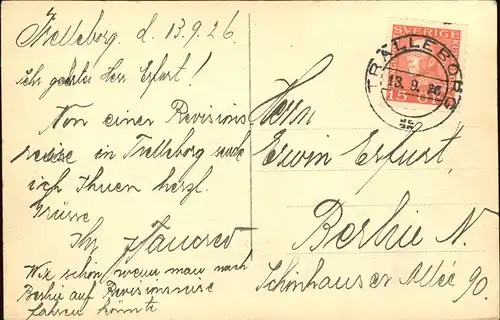 Trelleborg. d. 13.9.26.
Herr Erfurt!
Von einer Revisions
reise in Trelleborg sende
ich Ihnen herzl.
Grüsse
Ihr
Wie schön, wenn man nach
Berlin auf Revisionsreise
fahren könnte
SVERIGE
15
TRÄLLEBORG
13. 9. 26
Herrn
Erwin Erfurt,
Berlin N.
Schönhauser Allée 90.